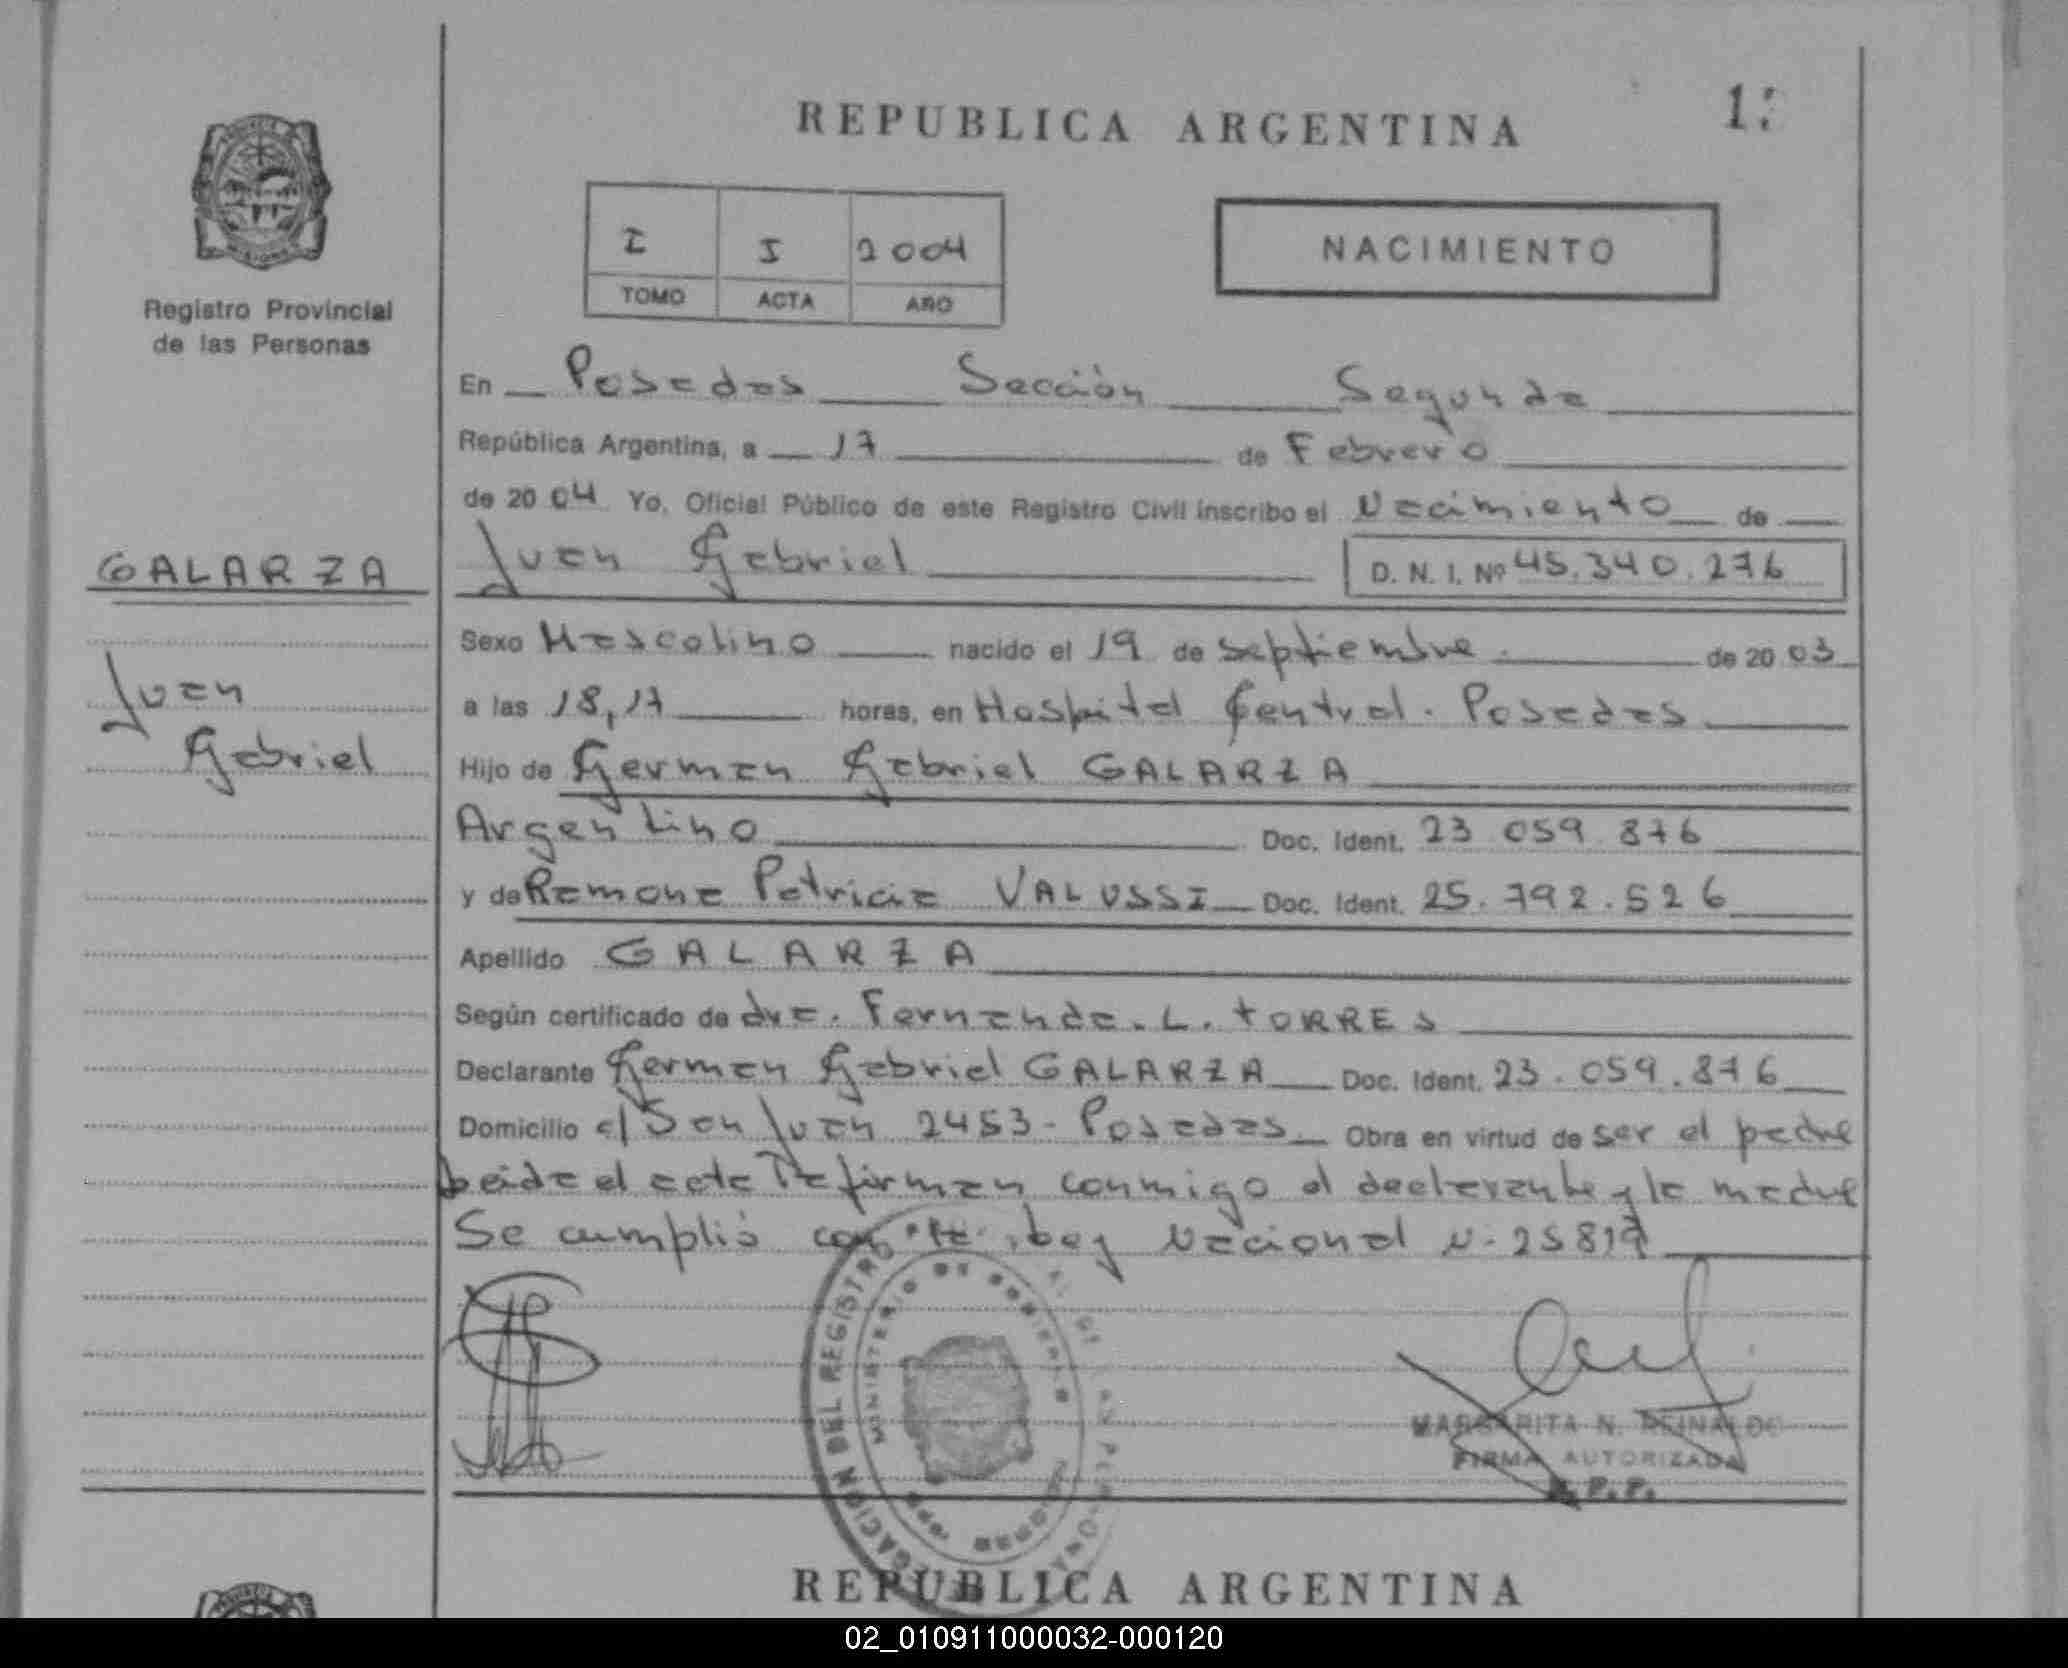 REPUBLICA ARGENTINA
I I 2004
TOMO ACTA AÑO
NACIMIENTO
Registro Provincial
de las Personas
En Posadas Sección Segunda
República Argentina, a 17 de Febrero
de 20 04 Yo, Oficial Público de este Registro Civil inscribo el Nacimiento de
Juan Gabriel D. N. I. Nº 45.340.276
GALARZA
Juan
Gabriel
Sexo Mascolino nacido el 19 de septiembre de 20 03
a las 18,17 horas, en Hospital Central. Posadas
Hijo de German Gabriel GALARZA
Argentino Doc. Ident. 23.059.876
y de Ramona Patricia VALUSSI Doc. Ident. 25.792.526
Apellido GALARZA
Según certificado de dra. Fernanda. L. TORRES
Declarante German Gabriel GALARZA Doc. Ident. 23.059.876
Domicilio c/ San Juan 2453 - Posadas Obra en virtud de ser el padre
Leida el acta la firman conmigo el declarante y la madre
Se cumplió con la Ley Nacional N. 25819
DEL REGISTRO
MINISTERIO DE GOBIERNO
MARGARITA N. REINALDO
FIRMA AUTORIZADA
R.P.P.
REPUBLICA ARGENTINA
02_010911000032-000120